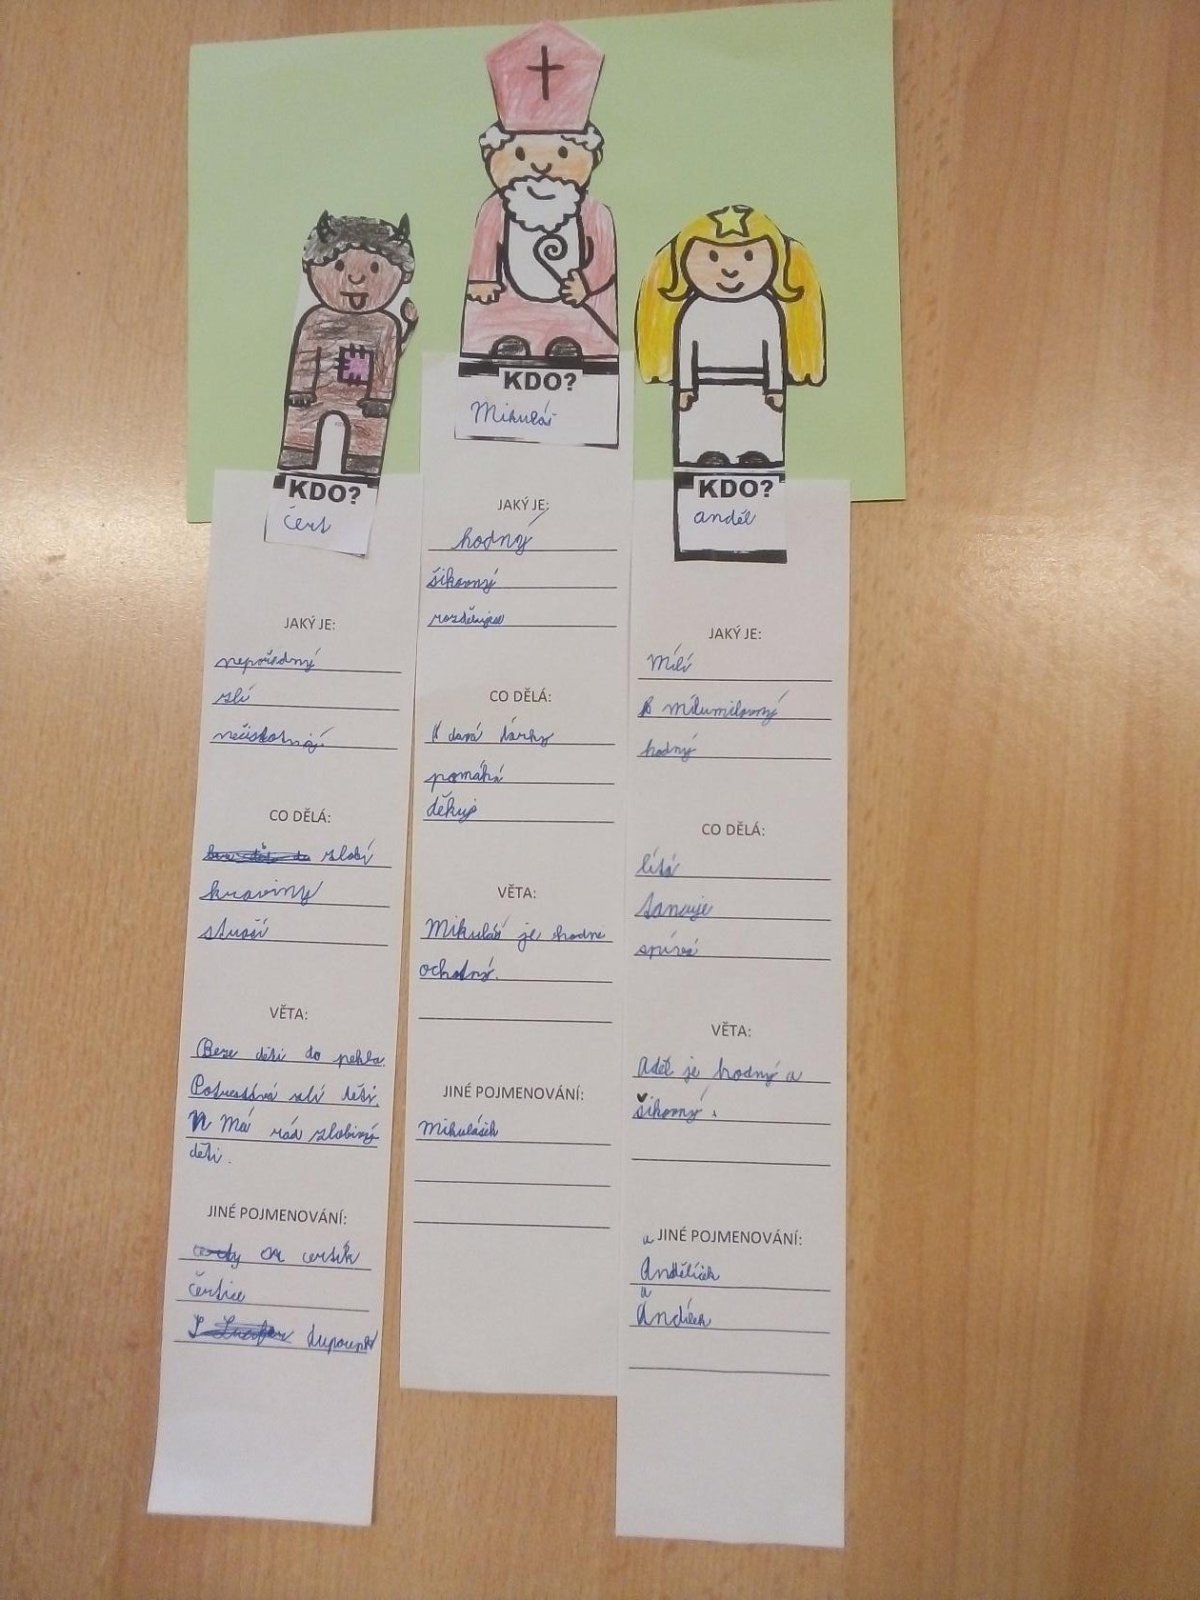 KDO?
čert
JAKÝ JE:
nepořádný
zlí
CO DĚLÁ:
zlobí
kraviny
straší
VĚTA:
Bere děti do pekla.
Potrestává zlí děti.
Má rád zlobivý
děti.
JINÉ POJMENOVÁNÍ:
čertík
čertice
KDO?
Mikuláš
JAKÝ JE:
hodný
šikovný
CO DĚLÁ:
dává dárky
pomáhá
děkuje
VĚTA:
Mikuláš je hodně
ochotný.
JINÉ POJMENOVÁNÍ:
Mikulášek
KDO?
anděl
JAKÝ JE:
Milí
mílumilovný
hodný
CO DĚLÁ:
lítá
tancuje
zpívá
VĚTA:
Aděl je hodný a
šikovný.
JINÉ POJMENOVÁNÍ:
Andělíček
Andílek